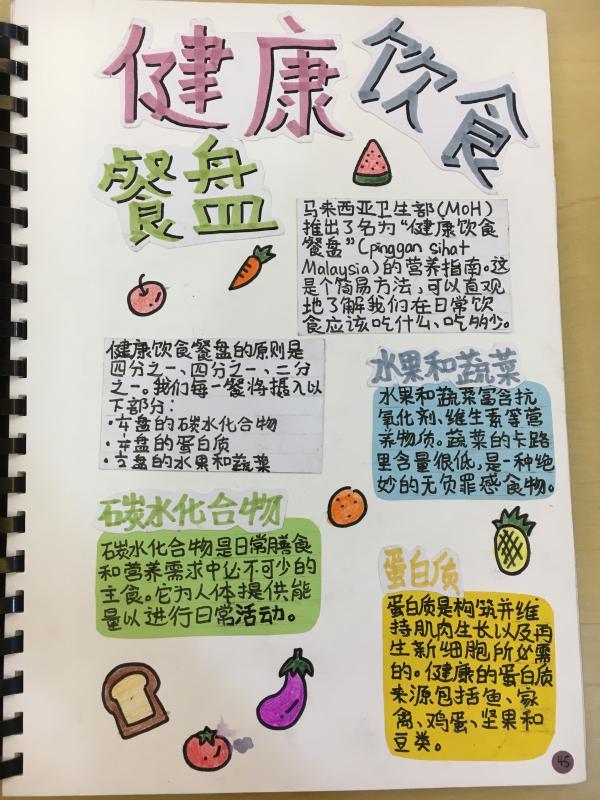 健康饮食
餐盘
马来西亚卫生部(MOH)
推出了名为“健康饮食
餐盘”(pinggan sihat
Malaysia)的营养指南。这
是个简易方法,可以直观
地了解我们在日常饮
食应该吃什么、吃多少。
健康饮食餐盘的原则是
四分之一、四分之一、二分
之一。我们每一餐将摄入以
下部分:
·¼盘的碳水化合物
·¼盘的蛋白质
·½盘的水果和蔬菜
水果和蔬菜
水果和蔬菜富含抗
氧化剂、维生素等营
养物质。蔬菜的卡路
里含量很低,是一种绝
妙的无负罪感食物。
碳水化合物
碳水化合物是日常膳食
和营养需求中必不可少的
主食。它为人体提供能
量以进行日常活动。
蛋白质
蛋白质是构筑并维
持肌肉生长以及再
生新细胞所必需
的。健康的蛋白质
来源包括鱼、家
禽、鸡蛋、坚果和
豆类。
45